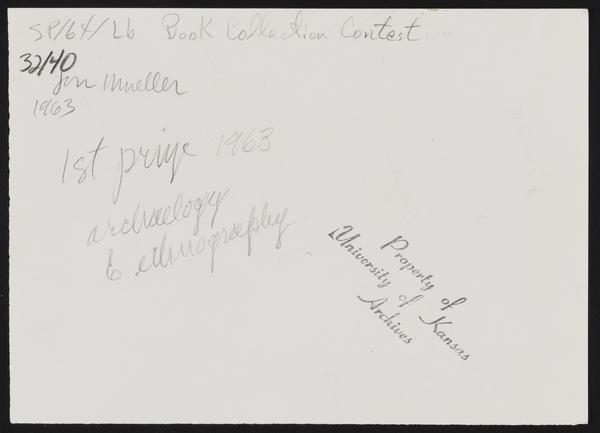 SP/64/Lb Book Collection Contest
32/40
Jon Mueller
1963
1st prize 1963
archaelogy
& ethnography
Property of
University of Kansas
Archives